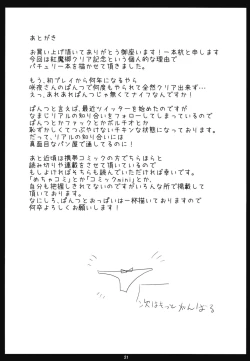 あとがき
お買い上げ頂いてありがとう御座います！一本杭と申します
今回は紅魔郷クリア記念という個人的な理由で
パチュリー本を描かせて頂きました。
もう、初プレイから何年になるやら
咲夜さんのぱんつで何度もやられて全然クリア出来ず…
つーか、あれはぱんつじゃ無くてナイフなんですか！
ぱんつと言えば、最近ツイッターを始めたのですが
なまじリアルの知り合いをフォローしてしまっているので
ぱんつとかファックとかポルチオとか
恥ずかしくてつぶやけないチキンな状態になっております。
なので、リアルの知り合いには
真面目なパン屋で通してるのに！
あと近頃は携帯コミックの方でちらほらと
読み切りや連載をさせて頂いているので
もしよければそちらも読んでいただければ幸いです。
「めちゃコミ」とか「コミックmini」とか、
自分も把握しきれてないのですがいろんな所で掲載して
頂いております。
なにしろ、ぱんつとおっぱいは一杯描いておりますので
何卒よろしくお願いします！
次はもっとがんばる
21